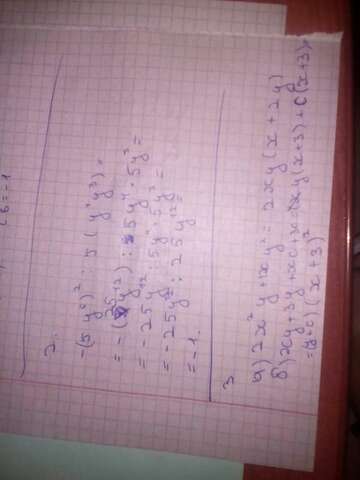 ( b = -1
2.
-(5y⁶)² : 5(y⁹y³) =
= -(25y¹²) : 5y⁹ · 5y³ =
= -25y¹² : 5y⁹ · 5y³ =
= -25y¹² : 25y¹² =
= -1.
3
a) 2x²y + xy² = 2xy(x + 2y)
б) xy + 3y + xc + 3c = y(x+3) + c(x+3) =
= (y+c)(x+3)²